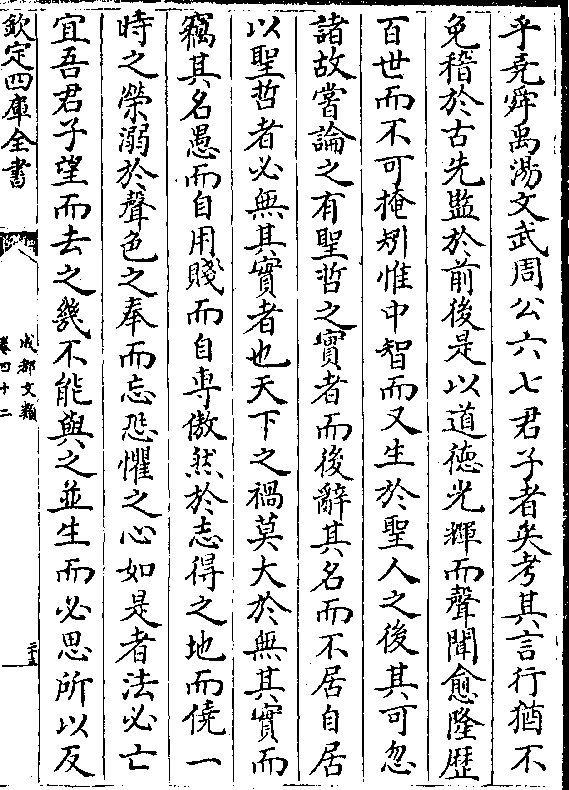 乎堯舜禹湯文武周公六七君子者矣考其言行猶不
免稽於古先監於前後是以道徳光輝而聲聞愈隆歴
百世而不可掩矧惟中智而又生於聖人之後其可忽
諸故嘗論之有聖哲之實者而後辭其名而不居自居
以聖哲者必無其實者也天下之禍莫大於無其實而
竊其名愚而自用賤而自専傲然於志得之地而僥一
時之榮溺於聲色之奉而忘恐懼之心如是者法必亡
宜吾君子望而去之幾不能與之並生而必思所以反
欽定四庫全書
成都文類
卷四十二
二十五